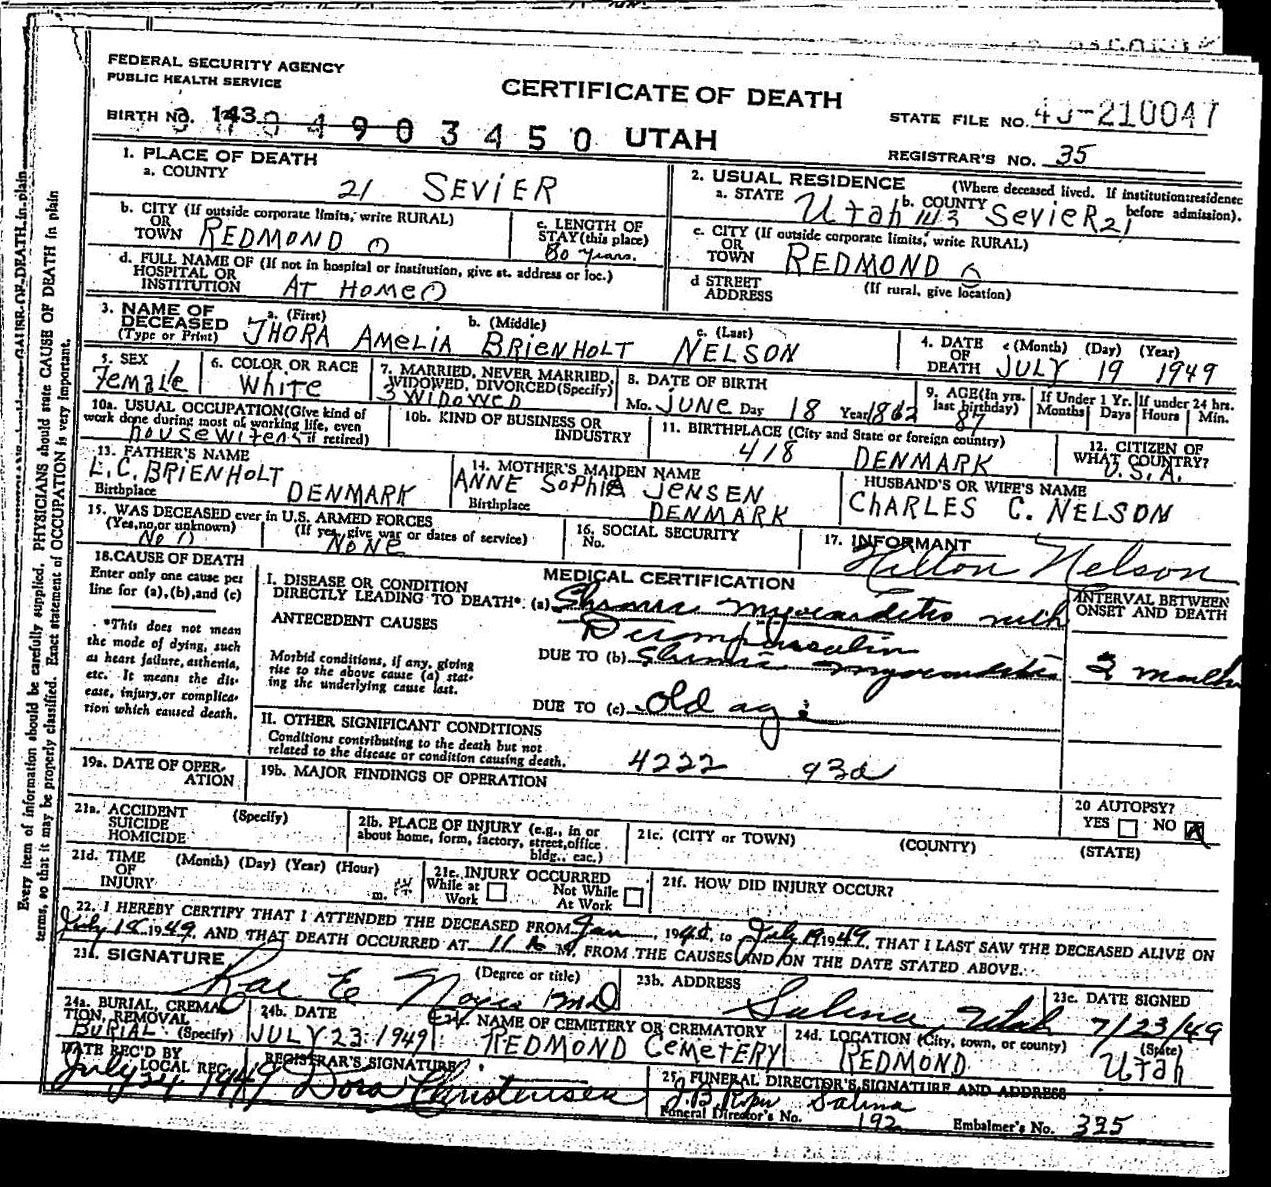 FEDERAL SECURITY AGENCY
PUBLIC HEALTH SERVICE
CERTIFICATE OF DEATH
STATE FILE NO. 49-210047
BIRTH NO. 143
04903450 UTAH
REGISTRAR'S NO. 35
1. PLACE OF DEATH
a. COUNTY
21 SEVIER
2. USUAL RESIDENCE (Where deceased lived. If institution:residence before admission).
a. STATE Utah 143 b. COUNTY SEVIER 21
b. CITY (If outside corporate limits, write RURAL)
OR
TOWN REDMOND 0
c. LENGTH OF
STAY (this place)
80 years.
c. CITY (If outside corporate limits, write RURAL)
OR
TOWN REDMOND
d. FULL NAME OF (If not in hospital or institution, give st. address or loc.)
HOSPITAL OR
INSTITUTION AT HOME 0
d STREET
ADDRESS
(If rural, give location)
3. NAME OF
DECEASED
(Type or Print)
a. (First) b. (Middle) c. (Last)
THORA AMELIA BRIENHOLT NELSON
4. DATE
OF
DEATH
(Month) (Day) (Year)
JULY 19 1949
5. SEX
Female
6. COLOR OR RACE
White
7. MARRIED, NEVER MARRIED,
WIDOWED, DIVORCED (Specify)
3 WIDOWED
8. DATE OF BIRTH
Mo. JUNE Day 18 Year 1862
9. AGE (In yrs.
last birthday)
87
If Under 1 Yr.
Months Days
If under 24 hrs.
Hours Min.
10a. USUAL OCCUPATION (Give kind of
work done during most of working life, even
if retired)
housewife
10b. KIND OF BUSINESS OR
INDUSTRY
11. BIRTHPLACE (City and State or foreign country)
418 DENMARK
12. CITIZEN OF
WHAT COUNTRY?
U.S.A.
13. FATHER'S NAME
L.C. BRIENHOLT
Birthplace DENMARK
14. MOTHER'S MAIDEN NAME
ANNE SOPHIA JENSEN
Birthplace DENMARK
HUSBAND'S OR WIFE'S NAME
CHARLES C. NELSON
15. WAS DECEASED ever in U.S. ARMED FORCES
(Yes, no, or unknown) (If yes, give war or dates of service)
No 0 NONE
16. SOCIAL SECURITY
No.
17. INFORMANT
Hilton Nelson
18. CAUSE OF DEATH
Enter only one cause per
line for (a), (b), and (c)
*This does not mean
the mode of dying, such
as heart failure, asthenia,
etc. It means the dis-
ease, injury, or complica-
tion which caused death.
MEDICAL CERTIFICATION
I. DISEASE OR CONDITION
DIRECTLY LEADING TO DEATH*. (a) Chronic myocarditis with
Decompensation
ANTECEDENT CAUSES
Morbid conditions, if any, giving
rise to the above cause (a) stat-
ing the underlying cause last.
DUE TO (b) Chronic myocarditis
DUE TO (c) Old age
INTERVAL BETWEEN
ONSET AND DEATH
months
II. OTHER SIGNIFICANT CONDITIONS
Conditions contributing to the death but not
related to the disease or condition causing death.
4222 93d
19a. DATE OF OPER-
ATION
19b. MAJOR FINDINGS OF OPERATION
20 AUTOPSY?
YES NO X
21a. ACCIDENT
SUICIDE
HOMICIDE
(Specify)
21b. PLACE OF INJURY (e.g., in or
about home, form, factory, street, office
bldg., eac.)
21c. (CITY or TOWN) (COUNTY) (STATE)
21d. TIME
OF
INJURY
(Month) (Day) (Year) (Hour)
m.
21e. INJURY OCCURRED
While at
Work
Not While
At Work
21f. HOW DID INJURY OCCUR?
22. I HEREBY CERTIFY THAT I ATTENDED THE DECEASED FROM Jan, 194 , to July 19 1949, THAT I LAST SAW THE DECEASED ALIVE ON
July 18 1949, AND THAT DEATH OCCURRED AT 11 M, FROM THE CAUSES AND ON THE DATE STATED ABOVE.
23a. SIGNATURE
(Degree or title)
Rae E. Noyes MD
23b. ADDRESS
Salina, Utah
23c. DATE SIGNED
7/23/49
24a. BURIAL, CREMA-
TION, REMOVAL
(Specify)
BURIAL
24b. DATE
JULY 23. 1949
24c. NAME OF CEMETERY OR CREMATORY
REDMOND CEMETERY
24d. LOCATION (City, town, or county)
(State)
REDMOND Utah
DATE REC'D BY
LOCAL REG.
July 24 1949
REGISTRAR'S SIGNATURE
Dora Christensen
25. FUNERAL DIRECTOR'S SIGNATURE AND ADDRESS
Salina
Funeral Director's No. 192 Embalmer's No. 335
Every item of information should be carefully supplied. PHYSICIANS should state CAUSE OF DEATH in plain
terms, so that it may be properly classified. Exact statement of OCCUPATION is very important.